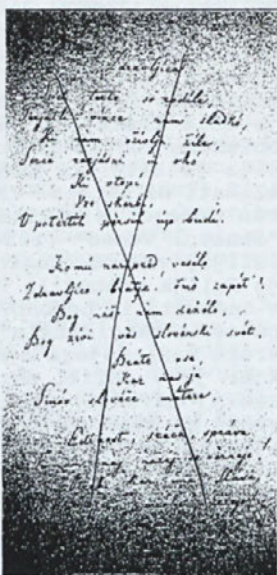 Zdravljica
terte so rodile
vince nam sladkó,
Ki nam oživlja žile,
Sercé razjásni in okó
Ki otopi
Vse skerbi,
V potertih pérsih úp budi.
Komú narpred veselo
Zdravljico, bratje! čmò zapét'!
Bog našo nam deželo,
Bog živi vès slovénski svèt,
Brate vse,
Kar nas je
Sinóv slovéče mátere.
Edinost, sréča, správa
naj nazaj
kar